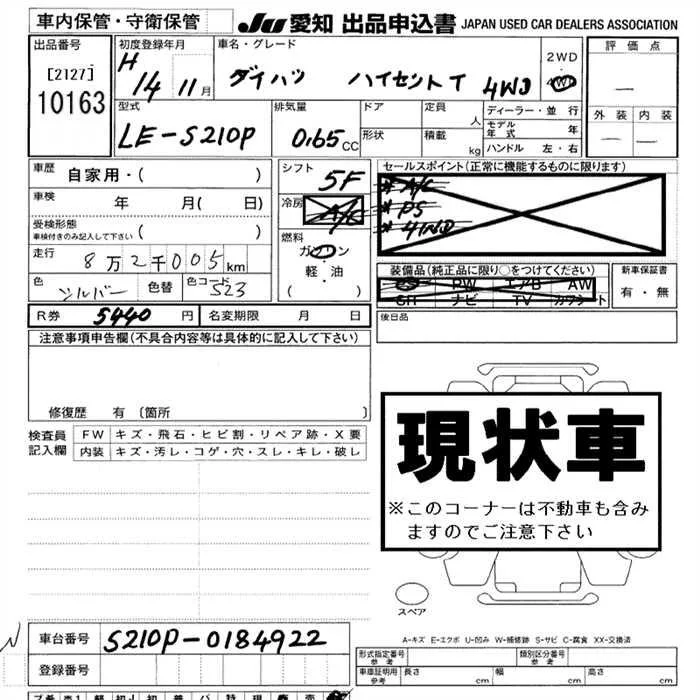 車内保管・守衛保管 JU 愛知 出品申込書 JAPAN USED CAR DEALERS ASSOCIATION
出品番号
[2127]
10163
初度登録年月
H 14 11月
車名・グレード
ダイハツ ハイゼット T 4WD
2WD
4WD
評価点
外装 内装
型式
LE-S210P
排気量
0.65 CC
ドア
形状
定員 人
積載 kg
ディーラー・並行
モデル年式 年
ハンドル 左・右
車歴 自家用・( )
車検 年 月( 日)
受検形態
車検付きのみ記入して下さい ( )
走行 8万2千005km
色 シルバー 色替 色コード S23
シフト 5F
冷房 A/C
燃料
ガソリン
軽・油
( )
セールスポイント(正常に機能するものに限ります)
* A/C
* PS
* 4WD
装備品(純正品に限り○をつけてください)
PW エアB AW
SR ナビ TV カワシート
新車保証書
有・無
後日品
R券 5440 円 名変期限 月 日
注意事項申告欄(不具合内容等は具体的に記入して下さい)
修復歴 有 〔箇所 〕
検査員記入欄
FW キズ・飛石・ヒビ割・リペア跡・X要
内装 キズ・汚レ・コゲ・穴・スレ・キレ・破レ
現状車
※このコーナーは不動車も含み
ますのでご注意下さい
スペア
A-キズ E-エクボ U-凹み W-補修跡 S-サビ C-腐食 XX-交換済
車台番号 S210P-0184922
登録番号
形式指定番号
参考
類別区分番号
参考
車庫証明用
参考
長さ cm 幅 cm 高さ cm